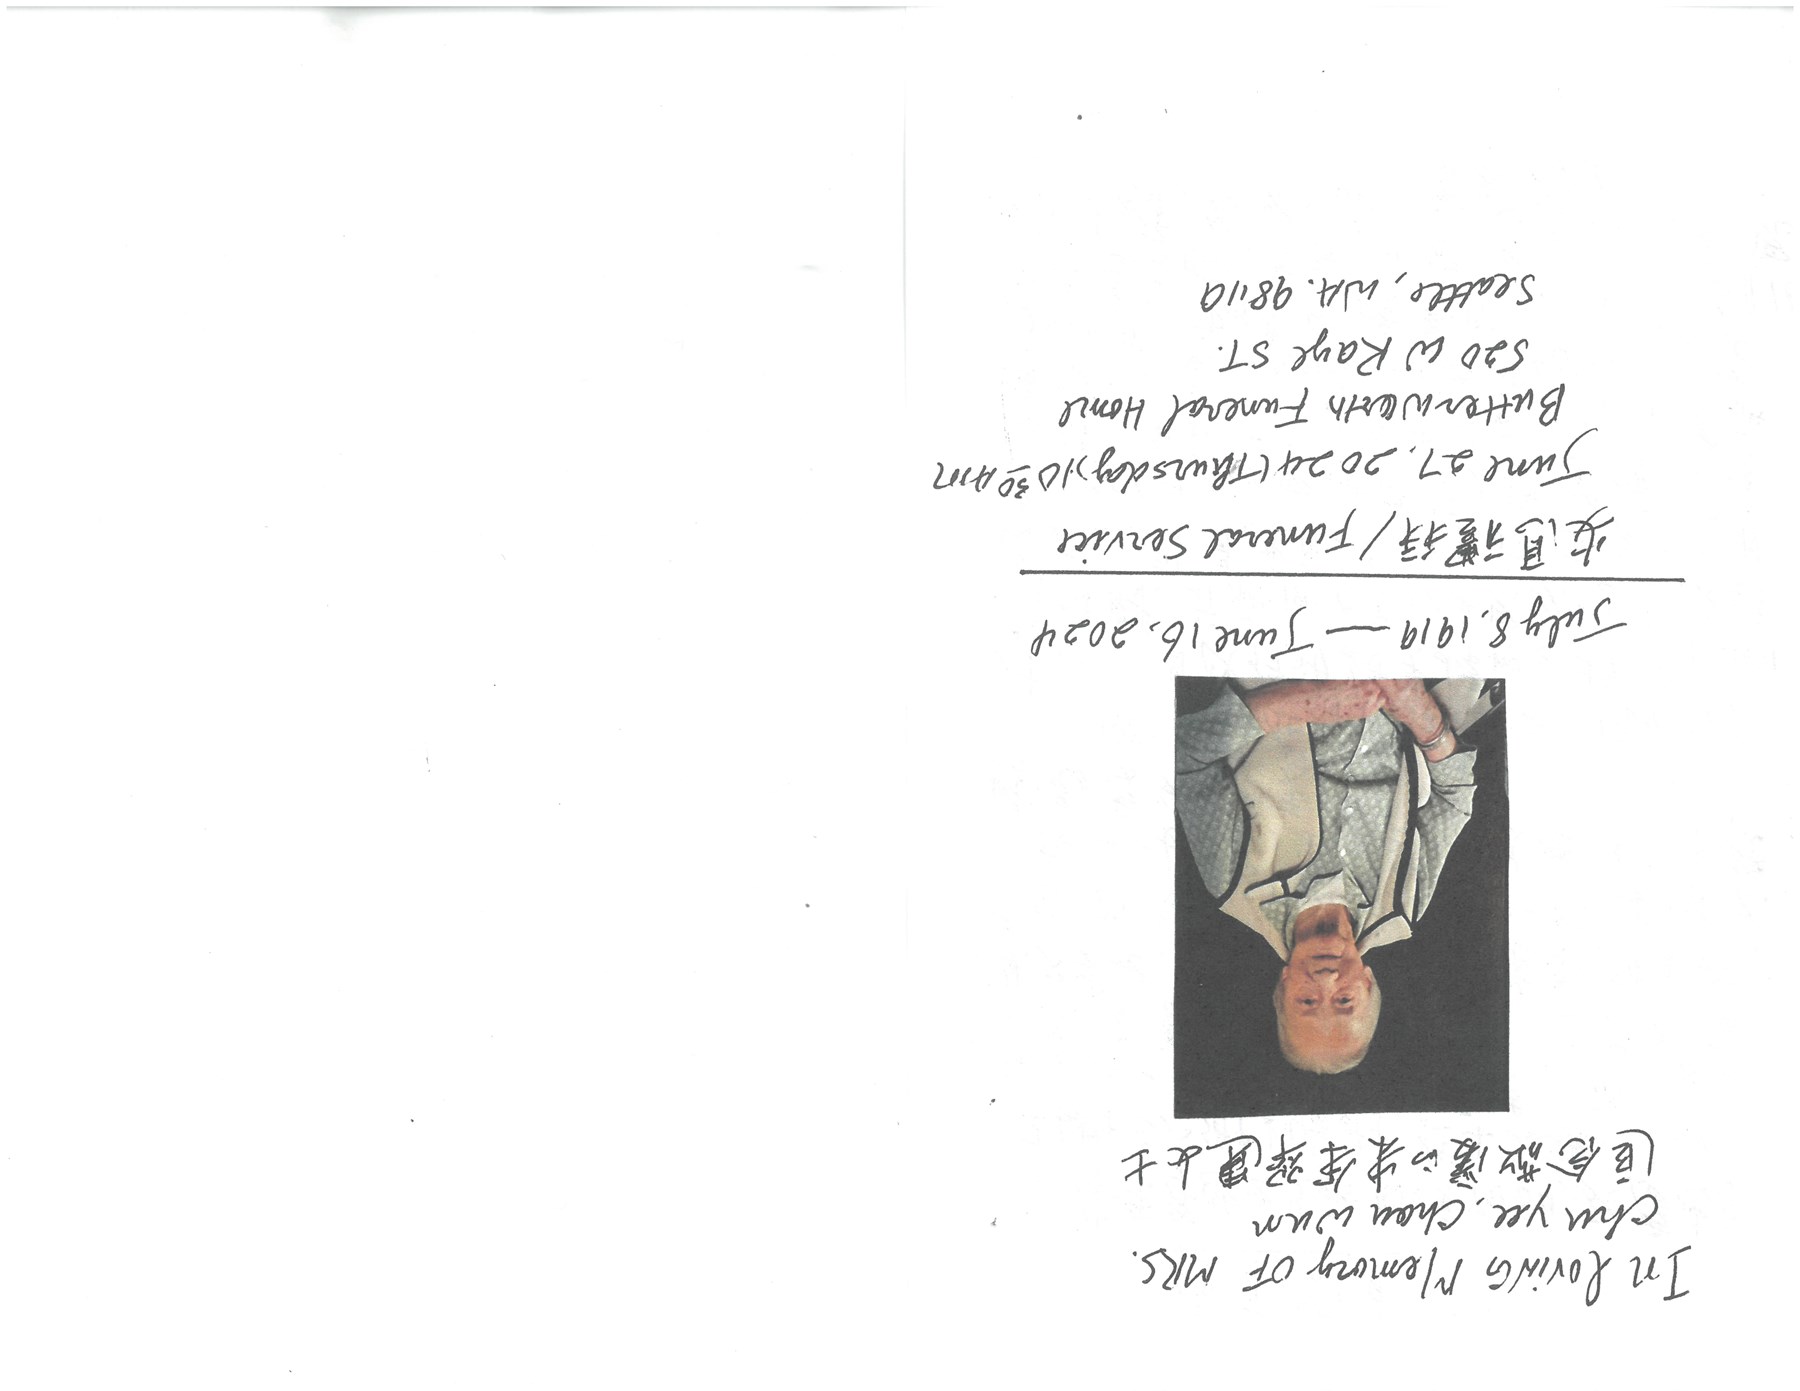 In loving Memory OF MRS.
Chu yee, Chau wun
念敬愛的朱余 女士
July 8, 1919 — June 16, 2024
安息禮拜 / Funeral Service
June 27, 2024 (Thursday) 10:30 AM
Butterworth Funeral Home
520 W Raye ST.
Seattle, WA. 98119